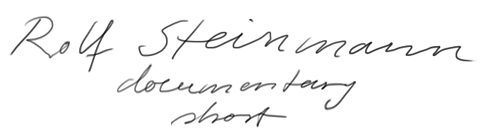 Rolf Steinmann
documentary
short